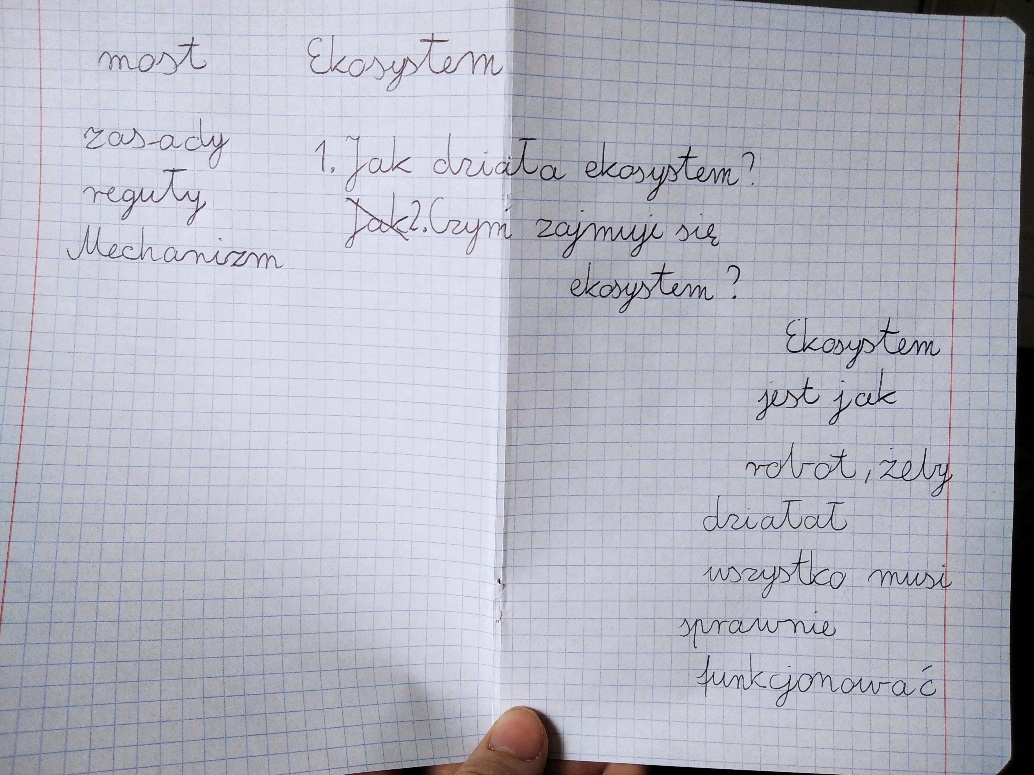 most
zasady
reguły
Mechanizm
Ekosystem
1. Jak działa ekosystem?
Jak 2. Czym zajmuji się
ekosystem?
Ekosystem
jest jak
robot, żeby
działał
wszystko musi
sprawnie
funkcjonować